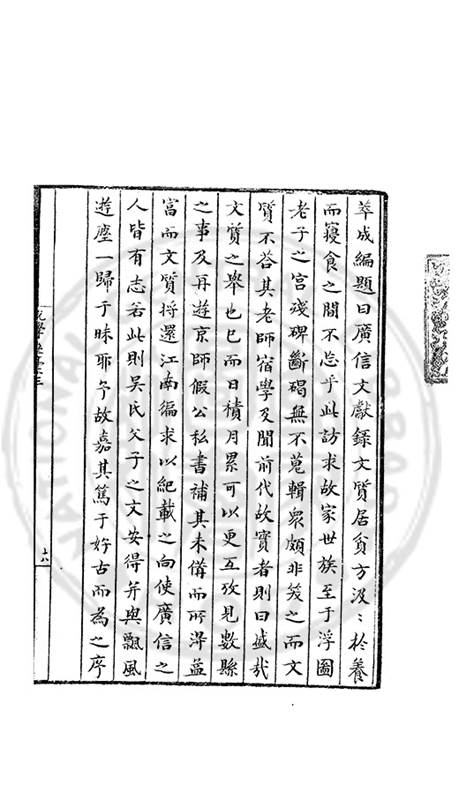 萃成編題曰廣信文獻錄文質居貧方汲〻於養
而寢食之間不忘乎此訪求故家世族至于浮圖
老子之宮殘碑斷碣無不蒐輯衆頗非笑之而文
質不荅其老師宿學及聞前代故實者則曰盛哉
文質之舉也已而日積月累可以更互攷見數縣
之事及再遊京師假公私書補其未備而所得益
富而文質將還江南徧求以紀載之向使廣信之
人皆有志若此則吴氏父子之文安得并與飄風
遊塵一歸于昧耶乎故嘉其篤于好古而為之序
十八